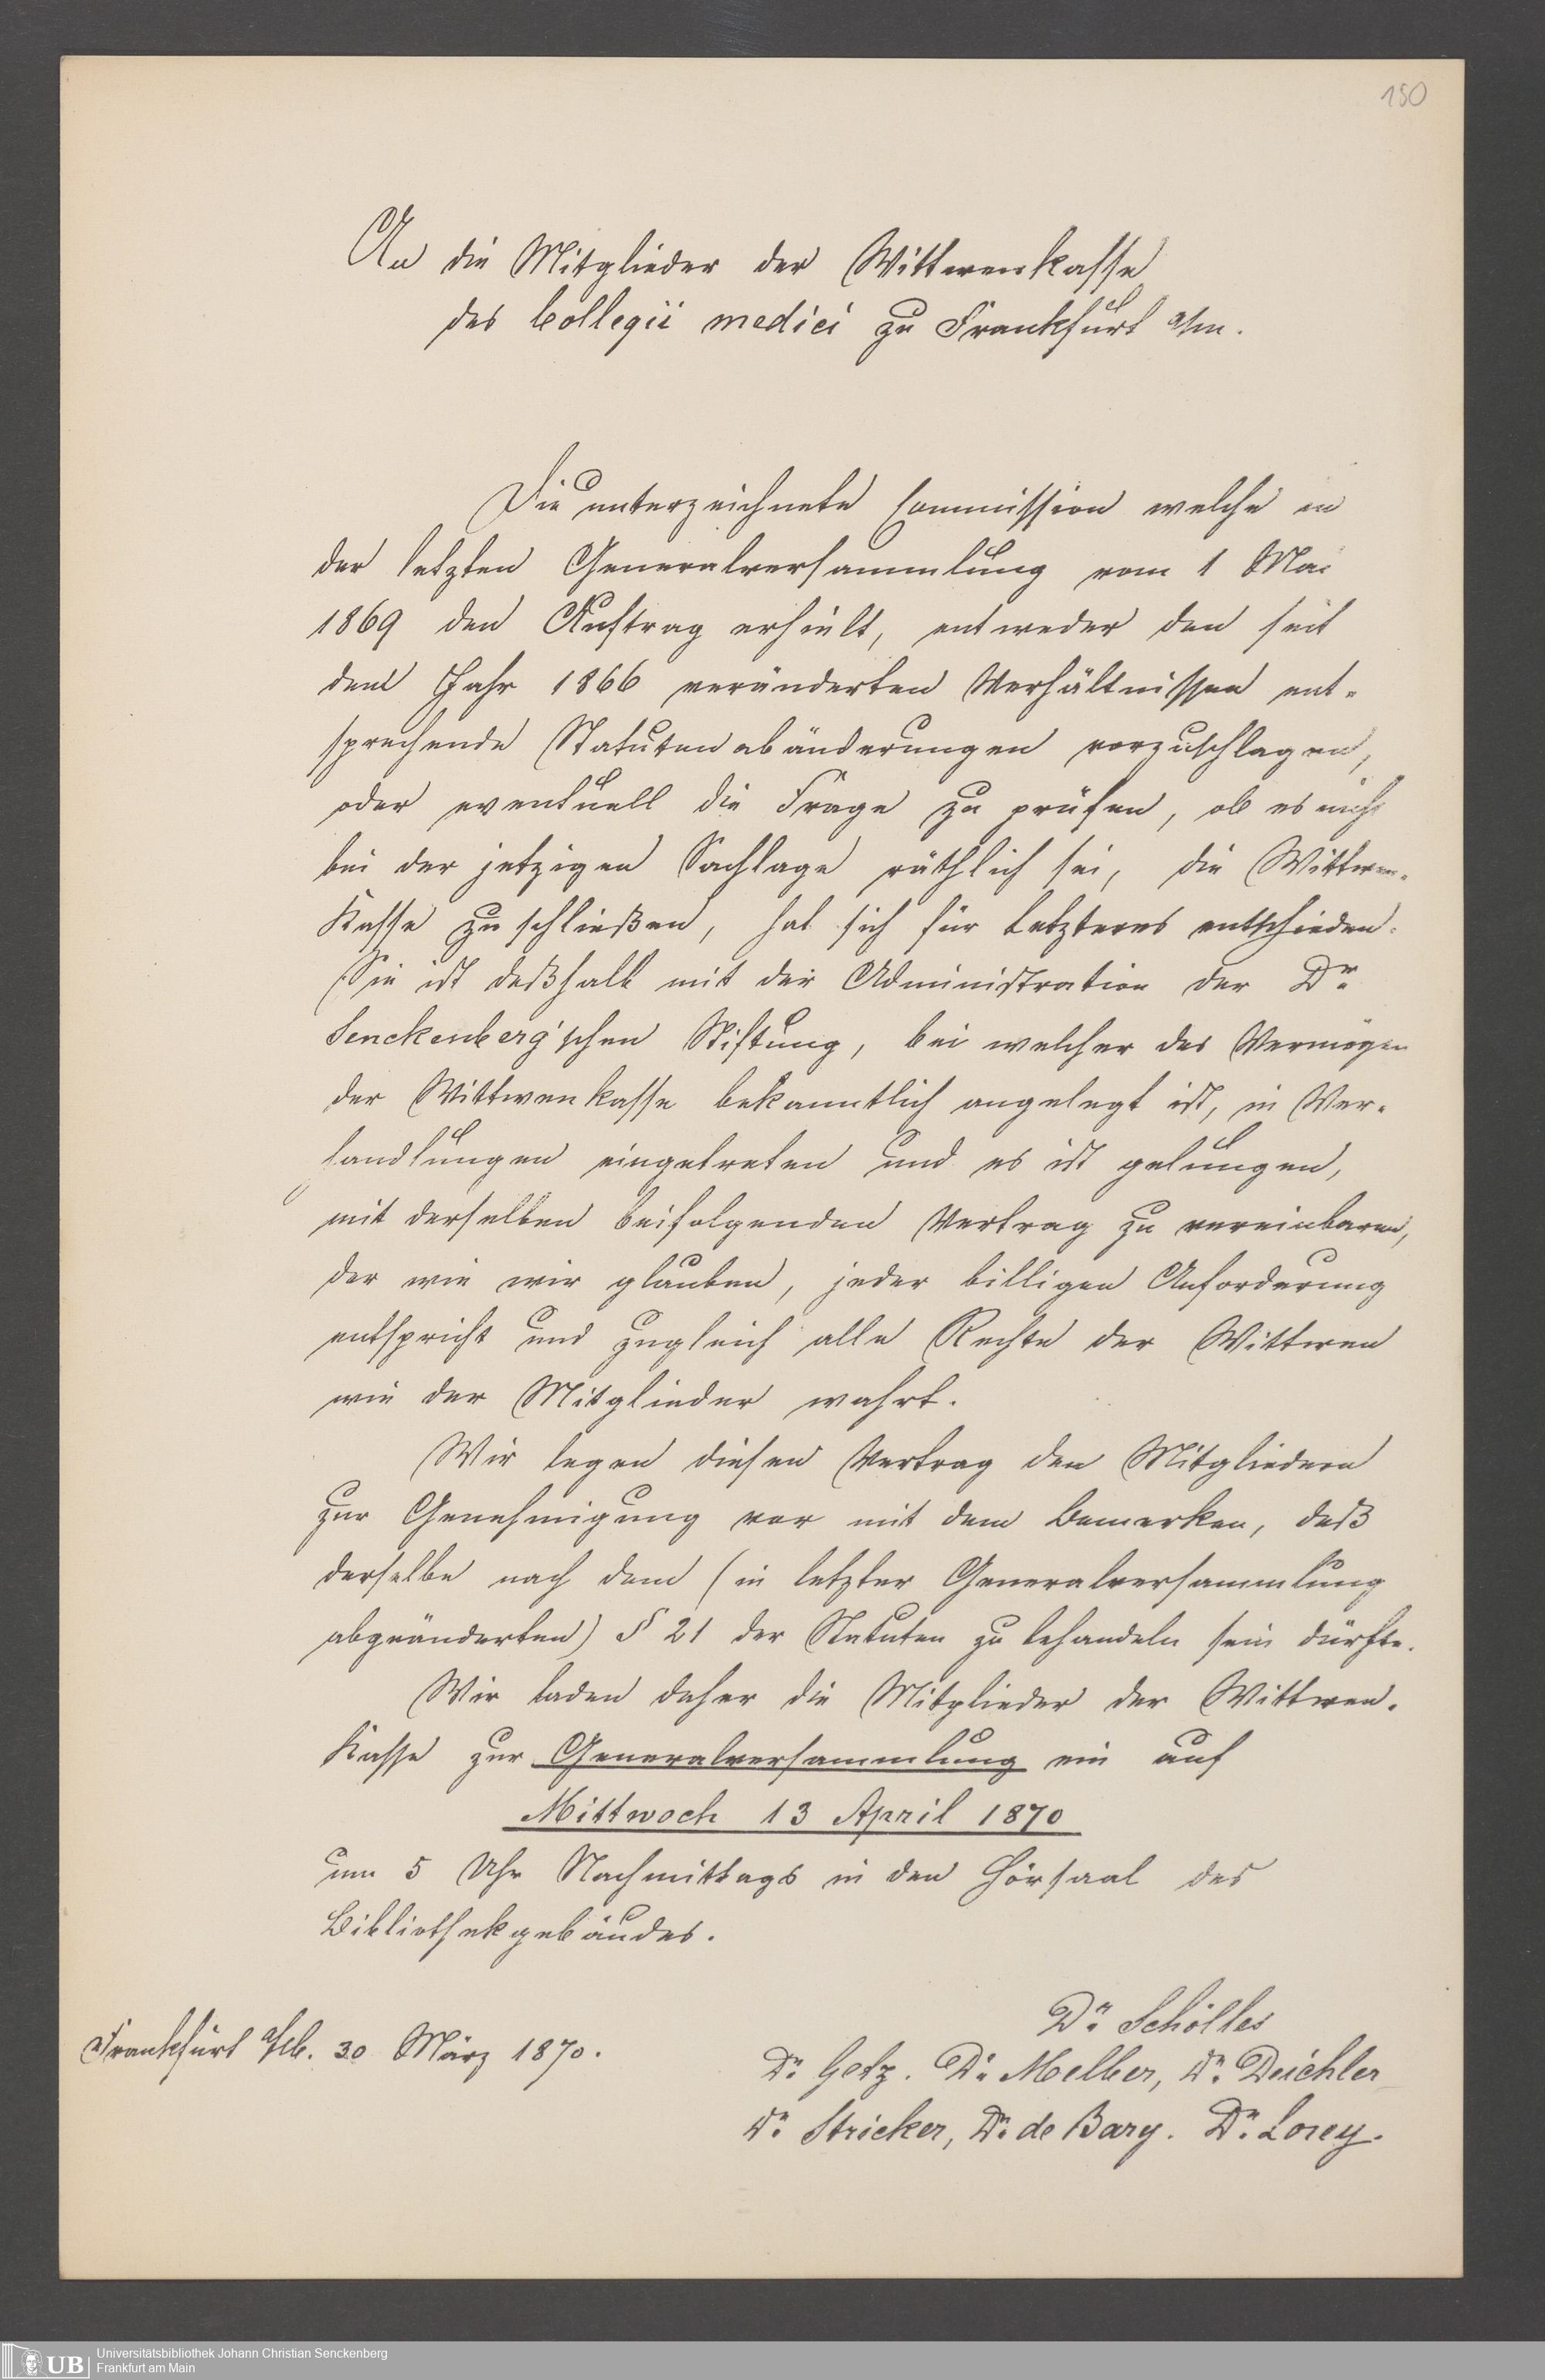 150
An die Mitglieder der Wittwenkasse
des Collegii medici zu Frankfurt a/m.
Die unterzeichnete Commission welche in
der letzten Generalversammlung vom 1 Mai
1869 den Auftrag erhielt, entweder den seit
dem Jahr 1866 veränderten Verhältnissen ent-
sprechende Statutenabänderungen vorzuschlagen,
oder eventuell die Frage zu prüfen, ob es nicht
bei der jetzigen Sachlage räthlich sei, die Wittwen-
Kasse zu schließen, hat sich für Letzteres entschieden.
Sie ist deßhalb mit der Administration der Dr
Senckenberg'schen Stiftung, bei welcher das Vermögen
der Wittwenkasse bekanntlich angelegt ist, in Ver-
handlungen eingetreten und es ist gelungen,
mit derselben beifolgenden Vertrag zu vereinbaren,
der wie wir glauben, jeder billigen Anforderung
entspricht und zugleich alle Rechte der Wittwen
wie der Mitglieder wahrt.
Wir legen diesen Vertrag den Mitgliedern
zur Genehmigung vor mit dem Bemerken, daß
derselbe nach dem (in letzter Generalversammlung
abgeänderten) § 21 der Statuten zu behandeln sein dürfte.
Wir laden daher die Mitglieder der Wittwen-
Kasse zur Generalversammlung ein auf
Mittwoch 13 April 1870
um 5 Uhr Nachmittags in den Hörsaal des
Bibliothekgebäudes.
Frankfurt a/M. 30 März 1870.
Dr. Schölles
Dr. Getz. Dr. Melber, Dr. Deichler
Dr. Stricker, Dr. de Bary. Dr. Lorey.
UB
Universitätsbibliothek Johann Christian Senckenberg
Frankfurt am Main